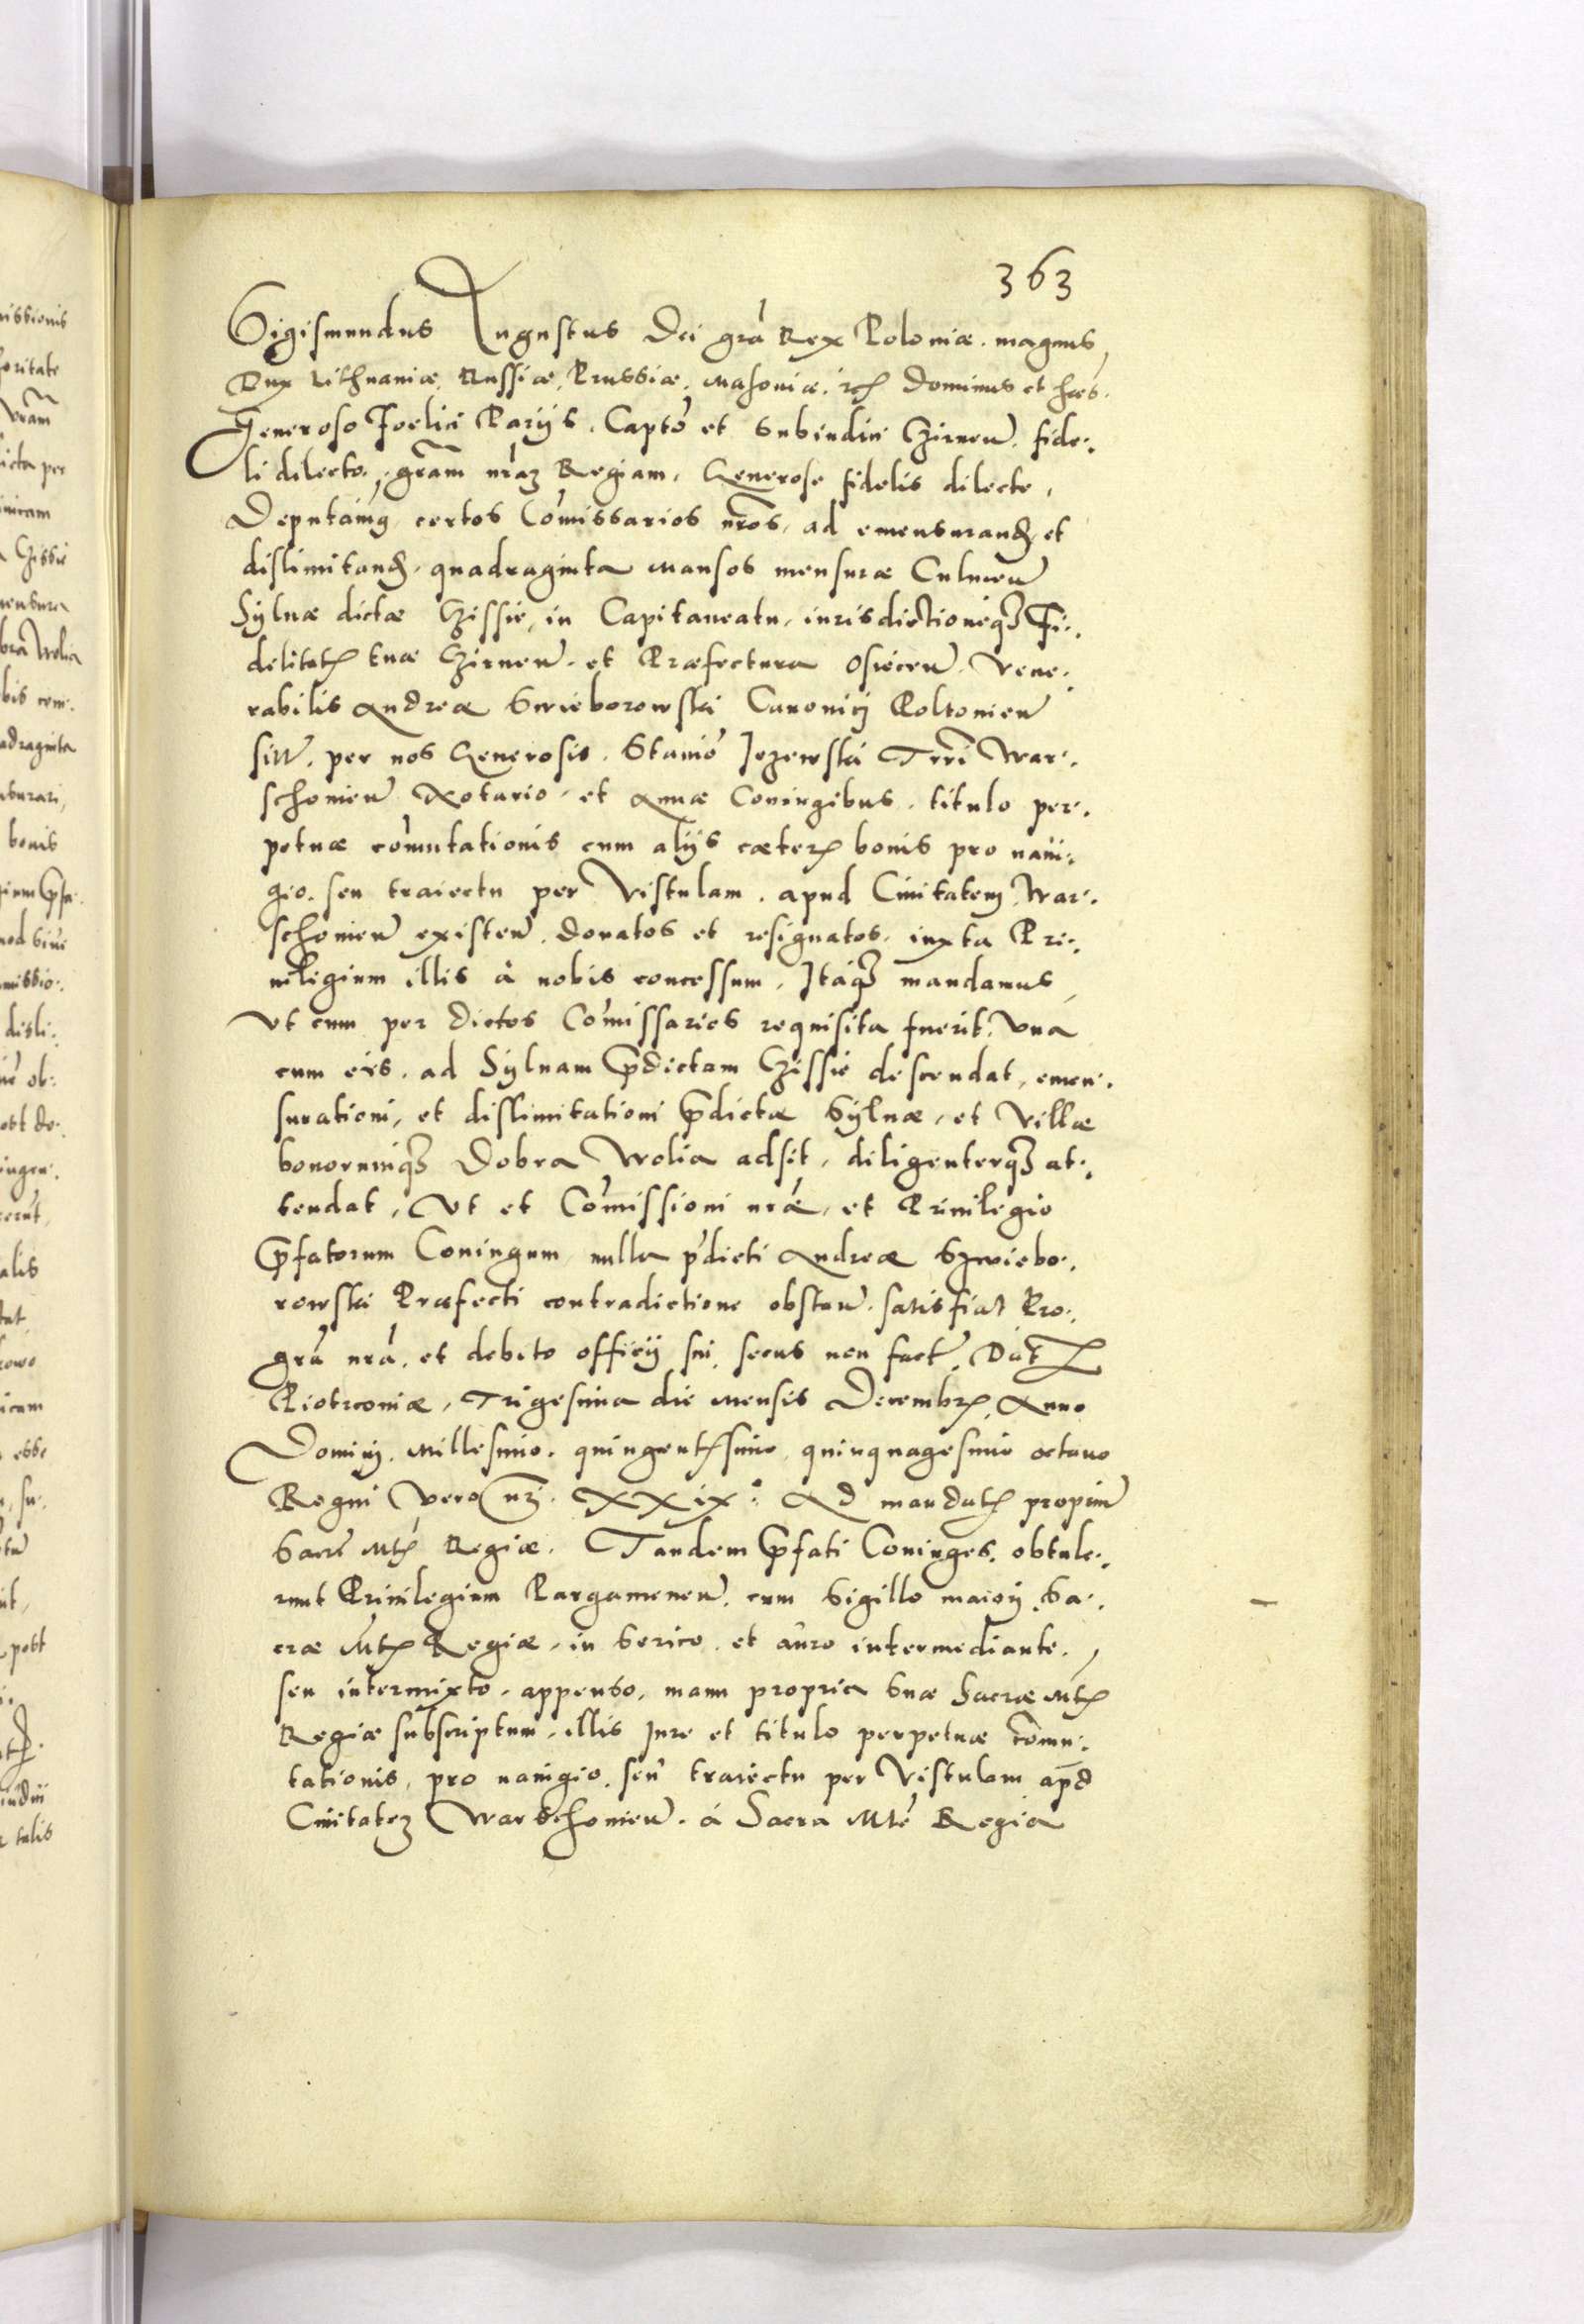 363
Sigismundus Augustus Dei gra Rex Poloniæ. magnus
Dux Lithuaniæ, Russiæ, Prussiæ, Masoniæ. etc. Dominus et hæs.
Generoso Foelici Parijs. Capto et Subiudici Czirneñ. fide:
li dilecto. gram nram Regiam. Generose fidelis dilecte,
Deputamq certos Comissarios nros, ad emensurand. et
dislimitand. quadraginta mansos mensuræ Culmeñ
Sylvæ dictæ Czissie, in Capitaneatu, iurisdictioneq3 Fi:
delitatis tuæ Czirneñ. et Præfectura Osieceñ. Vene:
rabilis Andreæ Swieborowski Canonici Poltovieñ
sitt. per nos Generosis. Stanio Jezewski Trri War:
schovieñ Notario. et Annæ Coniugibus. titulo per:
petuæ comutationis cum alijs cæteris bonis pro navi:
gio. seu traiectu per Vistulam. apud Civitatem War:
schovieñ existeñ. donatos et resignatos. iuxta Pri:
vilegium illis à nobis concessum, Itaq3 mandamus
Vt cum per dictos Comissarios requisita fuerit. Vna
cum eis. ad Sylvam pdictam Czissie descendat, emen:
surationi, et dislimitationi pdictæ Sylvæ, et Villæ
bonorumq3 Dobra Wolia adsit, diligenterq3 at:
tendat, Vt et Comissioni nræ, et Privilegio
pfatorum Coniugum nulla pdicti Andreæ Szwiebo:
rowski Præfecti contradictione obstañ. satisfiat Pro:
gra nra. et debito officij sui. secus non fact. Dat
Piotrcoviæ, Trigesima die mensis Decembris Anno
Dominj. Millesimo. quingentesimo quinquagesimo octavo
Regni Vero nri. XXix: Ad mandatum propriũ
Sacræ Mtis Regiæ. Tandem pfati Coniuges. obtule:
runt Privilegium Pargameneũ. cum Sigillo maiorj Sa:
cræ Mtis Regiæ, in Serico. et auro intermediante,
seu intermixto. appenso, manu propria Suæ Sacræ Mtis
Regiæ subscriptum, illis Jure et titulo perpetuæ comu:
tationis, pro navigio. seu traiectu per Vistulam apd
Civitatem Warschovieñ. á Sacra Mte Regia